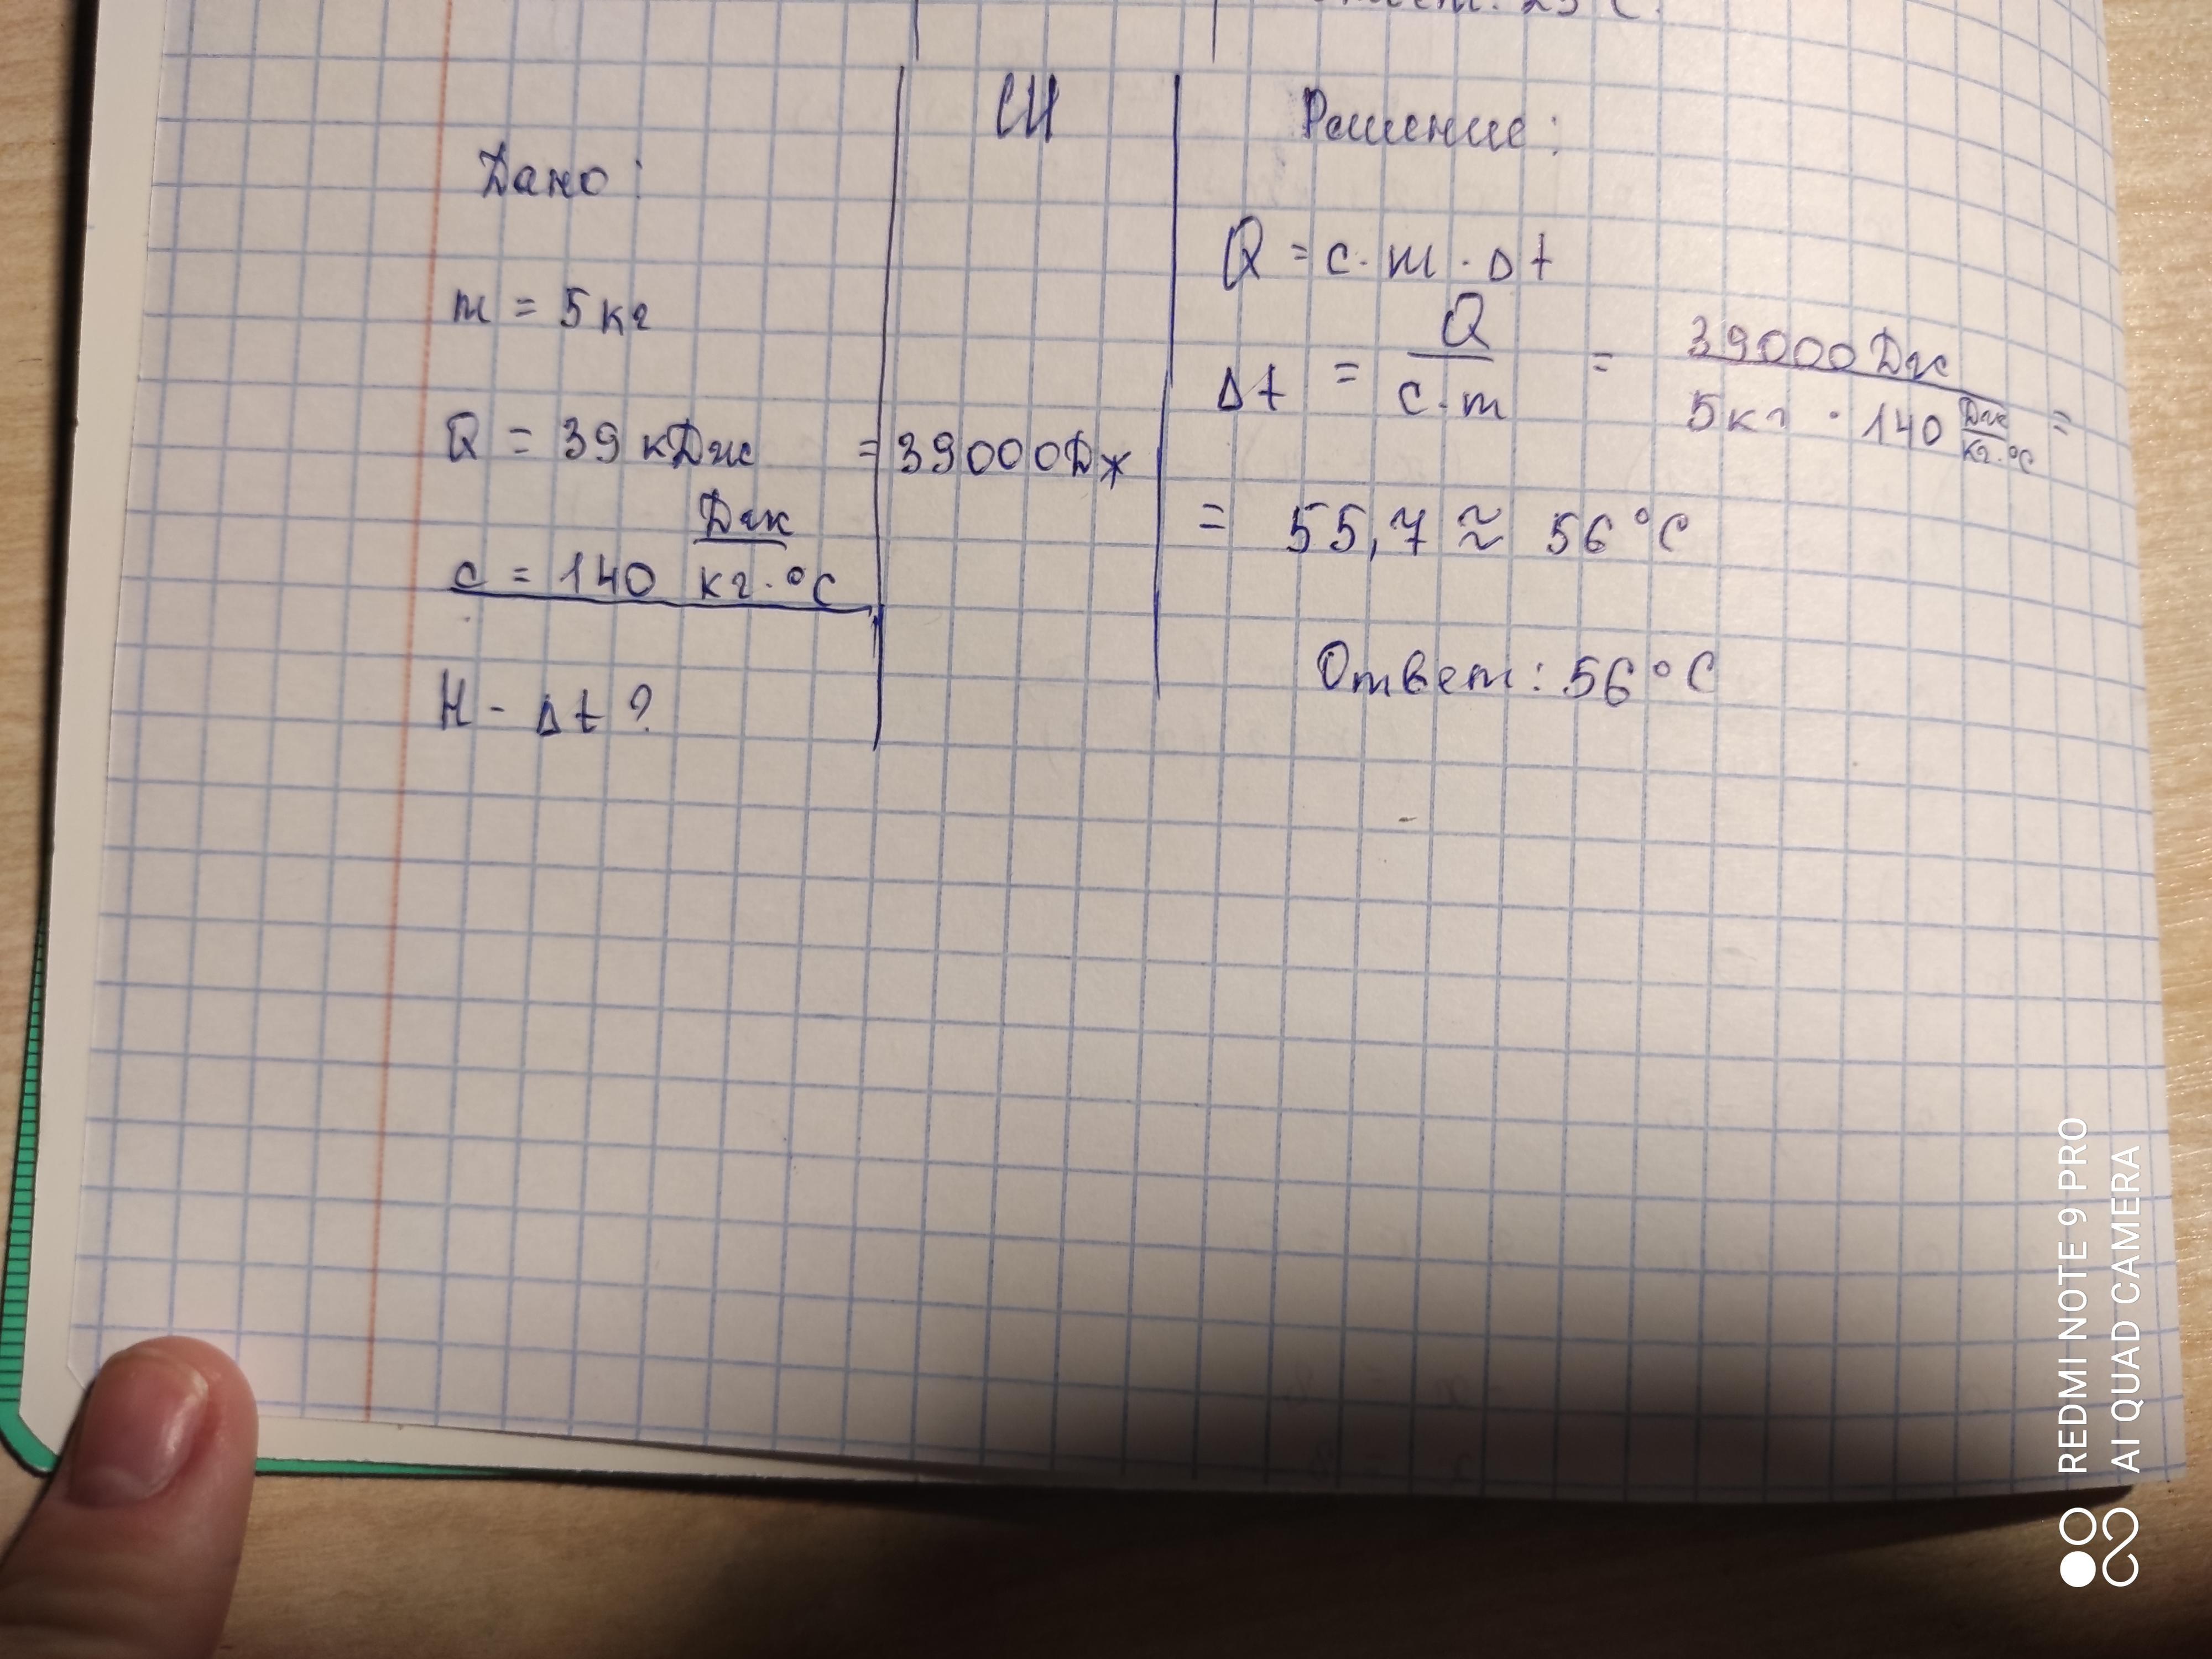 Ответ: 25°C.
Дано:
m = 5 кг
Q = 39 кДж
c = 140 Дж/кг·°C
Н - Δt ?
СИ
= 39000 Дж
Решение:
Q = c · m · Δt
Δt = Q/c·m = 39000 Дж/5 кг · 140 Дж/кг·°C =
= 55,7 ≈ 56 °C
Ответ: 56 °C
REDMI NOTE 9 PRO
AI QUAD CAMERA